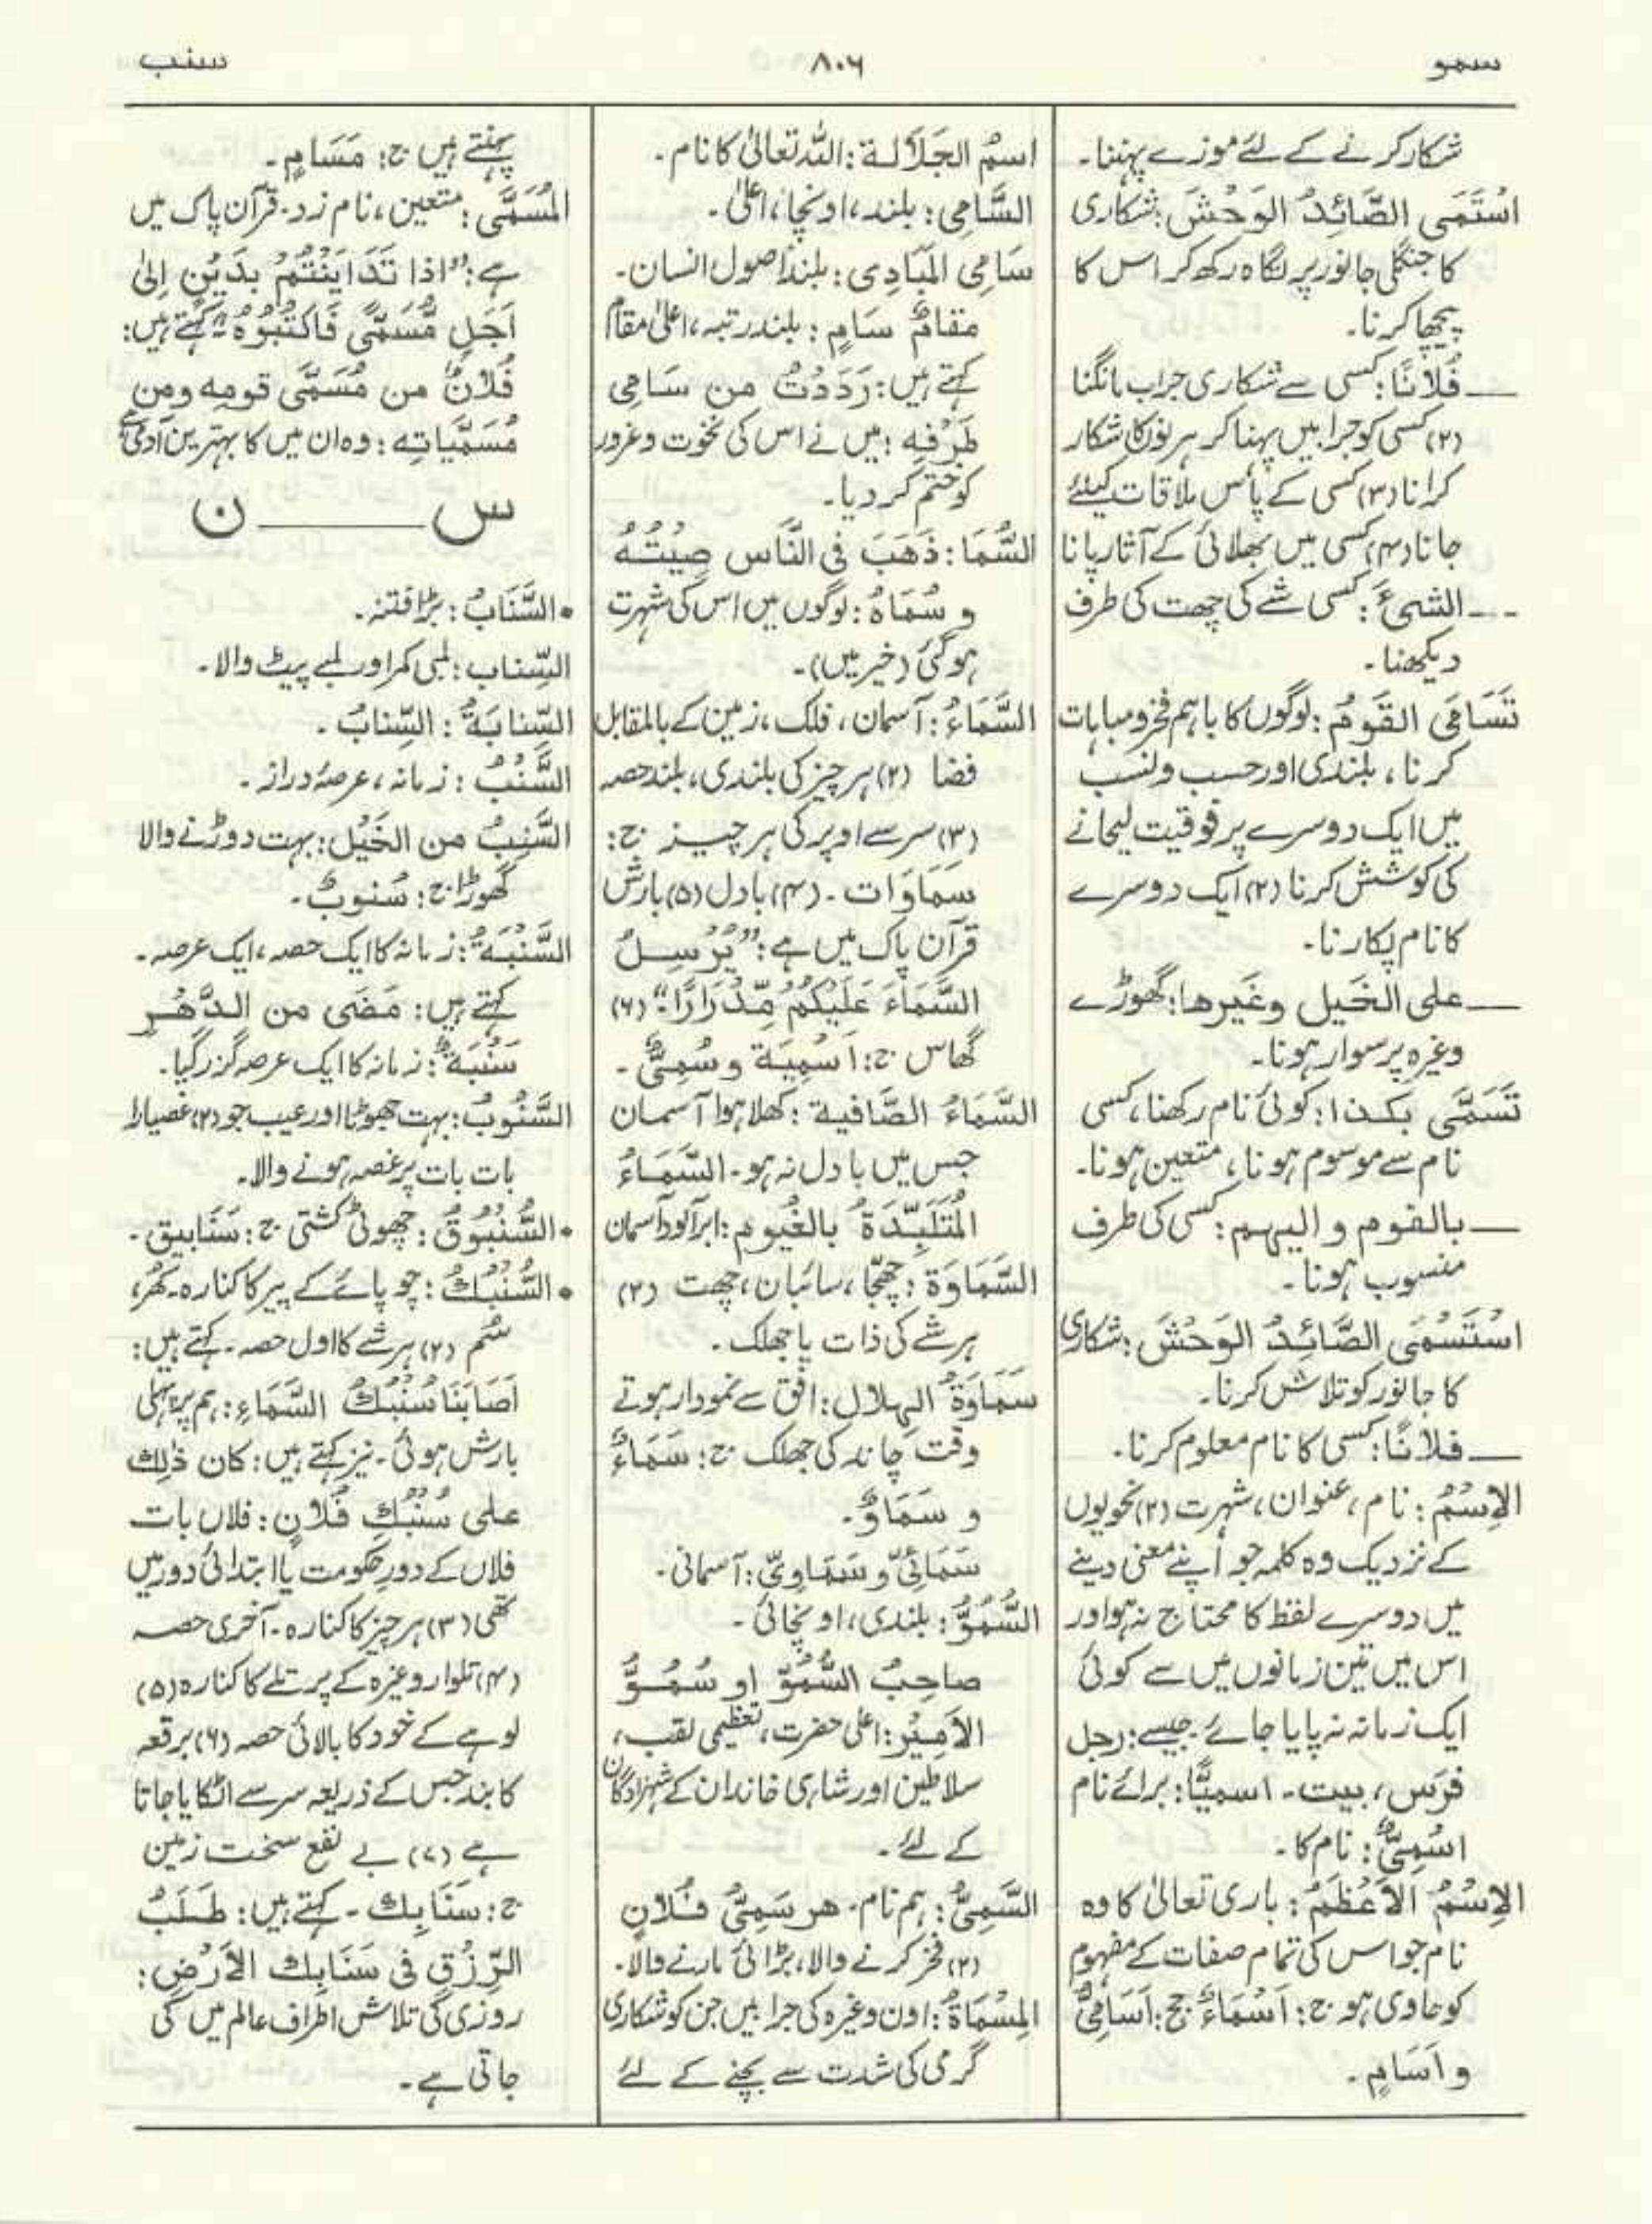 سمو
۸۰۶
سنب
شکار کرنے کے لئے موزے پہننا۔
اسْتَمَى الصَّائِدُ الوَحْشَ: شکاری
کا جنگلی جانور پر نگاہ رکھ کر اس کا
پیچھا کرنا۔
ــــ فُلَانًا: کسی سے شکاری جراب مانگنا
(۲) کسی کو جرابیں پہنا کر ہرنوں کا شکار
کرانا (۳) کسی کے پاس ملاقات کیلئے
جانا (۴) کسی میں بھلائی کے آثار پانا
ــــ الشیءَ: کسی شے کی چھت کی طرف
دیکھنا۔
تَسَامَى القَومُ: لوگوں کا باہم فخر و مباہات
کرنا، بلندی اور حسب و نسب
میں ایک دوسرے پر فوقیت لیجانے
کی کوشش کرنا (۲) ایک دوسرے
کا نام پکارنا۔
ــــ علی الخَیل وغَیرها: گھوڑے
وغیرہ پر سوار ہونا۔
تَسَمَّى بکذا: کوئی نام رکھنا، کسی
نام سے موسوم ہونا، متعین ہونا۔
ــــ بالقوم و الیہم: کسی کی طرف
منسوب ہونا۔
اسْتَسْمَى الصَّائِدُ الوَحْشَ: شکاری
کا جانور کو تلاش کرنا۔
ــــ فلانًا: کسی کا نام معلوم کرنا۔
الاِسْمُ: نام، عنوان، شہرت (۲) نحویوں
کے نزدیک وہ کلمہ جو اپنے معنی دینے
میں دوسرے لفظ کا محتاج نہ ہو اور
اس میں تین زمانوں میں سے کوئی
ایک زمانہ نہ پایا جائے۔ جیسے: رجل
فرَس، بیت۔ اسمیًّا: برائے نام
اسْمِیٌّ: نام کا۔
الاِسْمُ الاَعْظَمُ: باری تعالیٰ کا وہ
نام جو اس کی تمام صفات کے مفہوم
کو حاوی ہو ج: اَسْمَاءٌ جج: اَسَامِیُّ
و اَسَامٍ۔
اسمُ الجَلَالة: اللہ تعالیٰ کا نام۔
السَّامِی: بلند، اونچا، اعلیٰ۔
سَامِی المَبَادِی: بلند اصول انسان۔
مقامٌ سَامٍ: بلند رتبہ، اعلیٰ مقام
کہتے ہیں: رَدَدْتُ من سَامِی
طَرْفِه: میں نے اس کی نخوت و غرور
کو ختم کر دیا۔
السُّمَا: ذَهَبَ فی النَّاس صِیْتُهُ
و سُمَاهُ: لوگوں میں اس کی شہرت
ہوگئی (خیر میں)۔
السَّمَاءُ: آسمان، فلک، زمین کے بالمقابل
فضا (۲) ہر چیز کی بلندی، بلند حصہ
(۳) سر سے اوپر کی ہر چیز ج:
سَمَاوَات۔ (۴) بادل (۵) بارش
قرآن پاک میں ہے: ”یُرْسِلُ
السَّمَاءَ عَلَیْکُمْ مِّدْرَارًا“ (۶)
گھاس ج: اَسْمِیَة و سُمِیٌّ۔
السَّمَاءُ الصَّافیة: کھلا ہوا آسمان
جس میں بادل نہ ہو۔ السَّمَاءُ
المُتَلَبِّدَةُ بالغُیوم: ابر آلود آسمان
السَّمَاوَة: چھجّا، سائبان، چھت (۲)
ہر شے کی ذات یا جھلک۔
سَمَاوَةُ الہِلال: افق سے نمودار ہوتے
وقت چاند کی جھلک ج: سَمَاءٌ
و سَمَاوٌ۔
سَمَائِیّ و سَمَاوِیّ: آسمانی۔
السُّمُوُّ: بلندی، اونچائی۔
صاحِبُ السُّمُوّ او سُمُوُّ
الاَمِیْر: اعلیٰ حضرت، تعظیمی لقب،
سلاطین اور شاہی خاندان کے شہزادگان
کے لئے۔
السَّمِیُّ: ہم نام۔ هر سَمِیُّ فُلَانٍ
(۲) فخر کرنے والا، بڑائی مارنے والا۔
المِسْمَاةُ: اون وغیرہ کی جرابیں جن کو شکاری
گرمی کی شدت سے بچنے کے لئے
پہنتے ہیں ج: مَسَامٍ۔
المُسَمَّی: متعین، نام زد۔ قرآن پاک میں
ہے: ”اذا تَدَایَنْتُمْ بِدَیْنٍ اِلیٰ
اَجَلٍ مُّسَمًّی فَاکْتُبُوْهُ“ کہتے ہیں:
فُلَانٌ من مُسَمَّی قومِه ومن
مُسَمَّیَاتِه: وہ ان میں کا بہترین آدمی ہے
س ــــــــ ن
• السَّنَابُ: بڑا فتنہ۔
السِّناب: لمبی کمر اور لمبے پیٹ والا۔
السِّنابَةُ: السِّنابُ۔
السَّنْبُ: زمانہ، عرصۂ دراز۔
السَّنِبُ من الخَیْل: بہت دوڑنے والا
گھوڑا ج: سُنوبٌ۔
السَّنْبَةُ: زمانہ کا ایک حصہ، ایک عرصہ۔
کہتے ہیں: مَضَی من الدَّهْر
سَنْبَةٌ: زمانہ کا ایک عرصہ گزر گیا۔
السَّنُوبُ: بہت جھوٹا اور عیب جو (۲) غصیارا
بات بات پر غصہ ہونے والا۔
• السُّنْبُوقُ: چھوٹی کشتی ج: سَنَابیق۔
• السُّنْبُكُ: چوپائے کے پیر کا کنارہ۔ کھُر،
سُم (۲) ہر شے کا اول حصہ۔ کہتے ہیں:
اَصَابَنَا سُنْبُكُ السَّمَاءِ: ہم پر پہلی
بارش ہوئی۔ نیز کہتے ہیں: کان ذٰلِك
علی سُنْبُكِ فُلَانٍ: فلاں بات
فلاں کے دورِ حکومت یا ابتدائی دور میں
تھی (۳) ہر چیز کا کنارہ۔ آخری حصہ
(۴) تلوار وغیرہ کے پرتلے کا کنارہ (۵)
لوہے کے خود کا بالائی حصہ (۶) برقعہ
کا بند جس کے ذریعہ سر سے اٹکایا جاتا
ہے (۷) بے نفع سخت زمین
ج: سَنَابِك۔ کہتے ہیں: طَلَبُ
الرِّزْقِ فی سَنَابِك الاَرْضِ:
روزی کی تلاش اطراف عالم میں کی
جاتی ہے۔